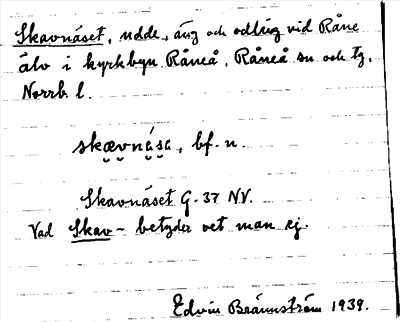 Skavnäset, udde, äng och odling vid Råne
älv i kyrkbyn Råneå, Råneå sn och tg,
Norrb. l.
skævnäsa, bf. n.
Skavnäset G. 37 NV.
Vad Skav- betyder vet man ej.
Edvin Brännström 1939.